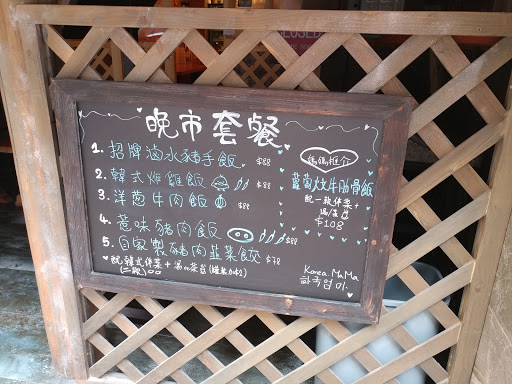 CLOSED
晚市套餐
1. 招牌滷水豬手飯 $88
2. 韓式炸雞飯 $88
3. 洋蔥牛肉飯 $88
4. 惹味豬肉飯 $88
5. 自家製豬肉韭菜餃 $78
配韓式伴菜 + 湯
(二款)
媽媽推介
蘿蔔炆牛肋骨飯
配一款伴菜 +
$108
Korea MaMa
한국엄마